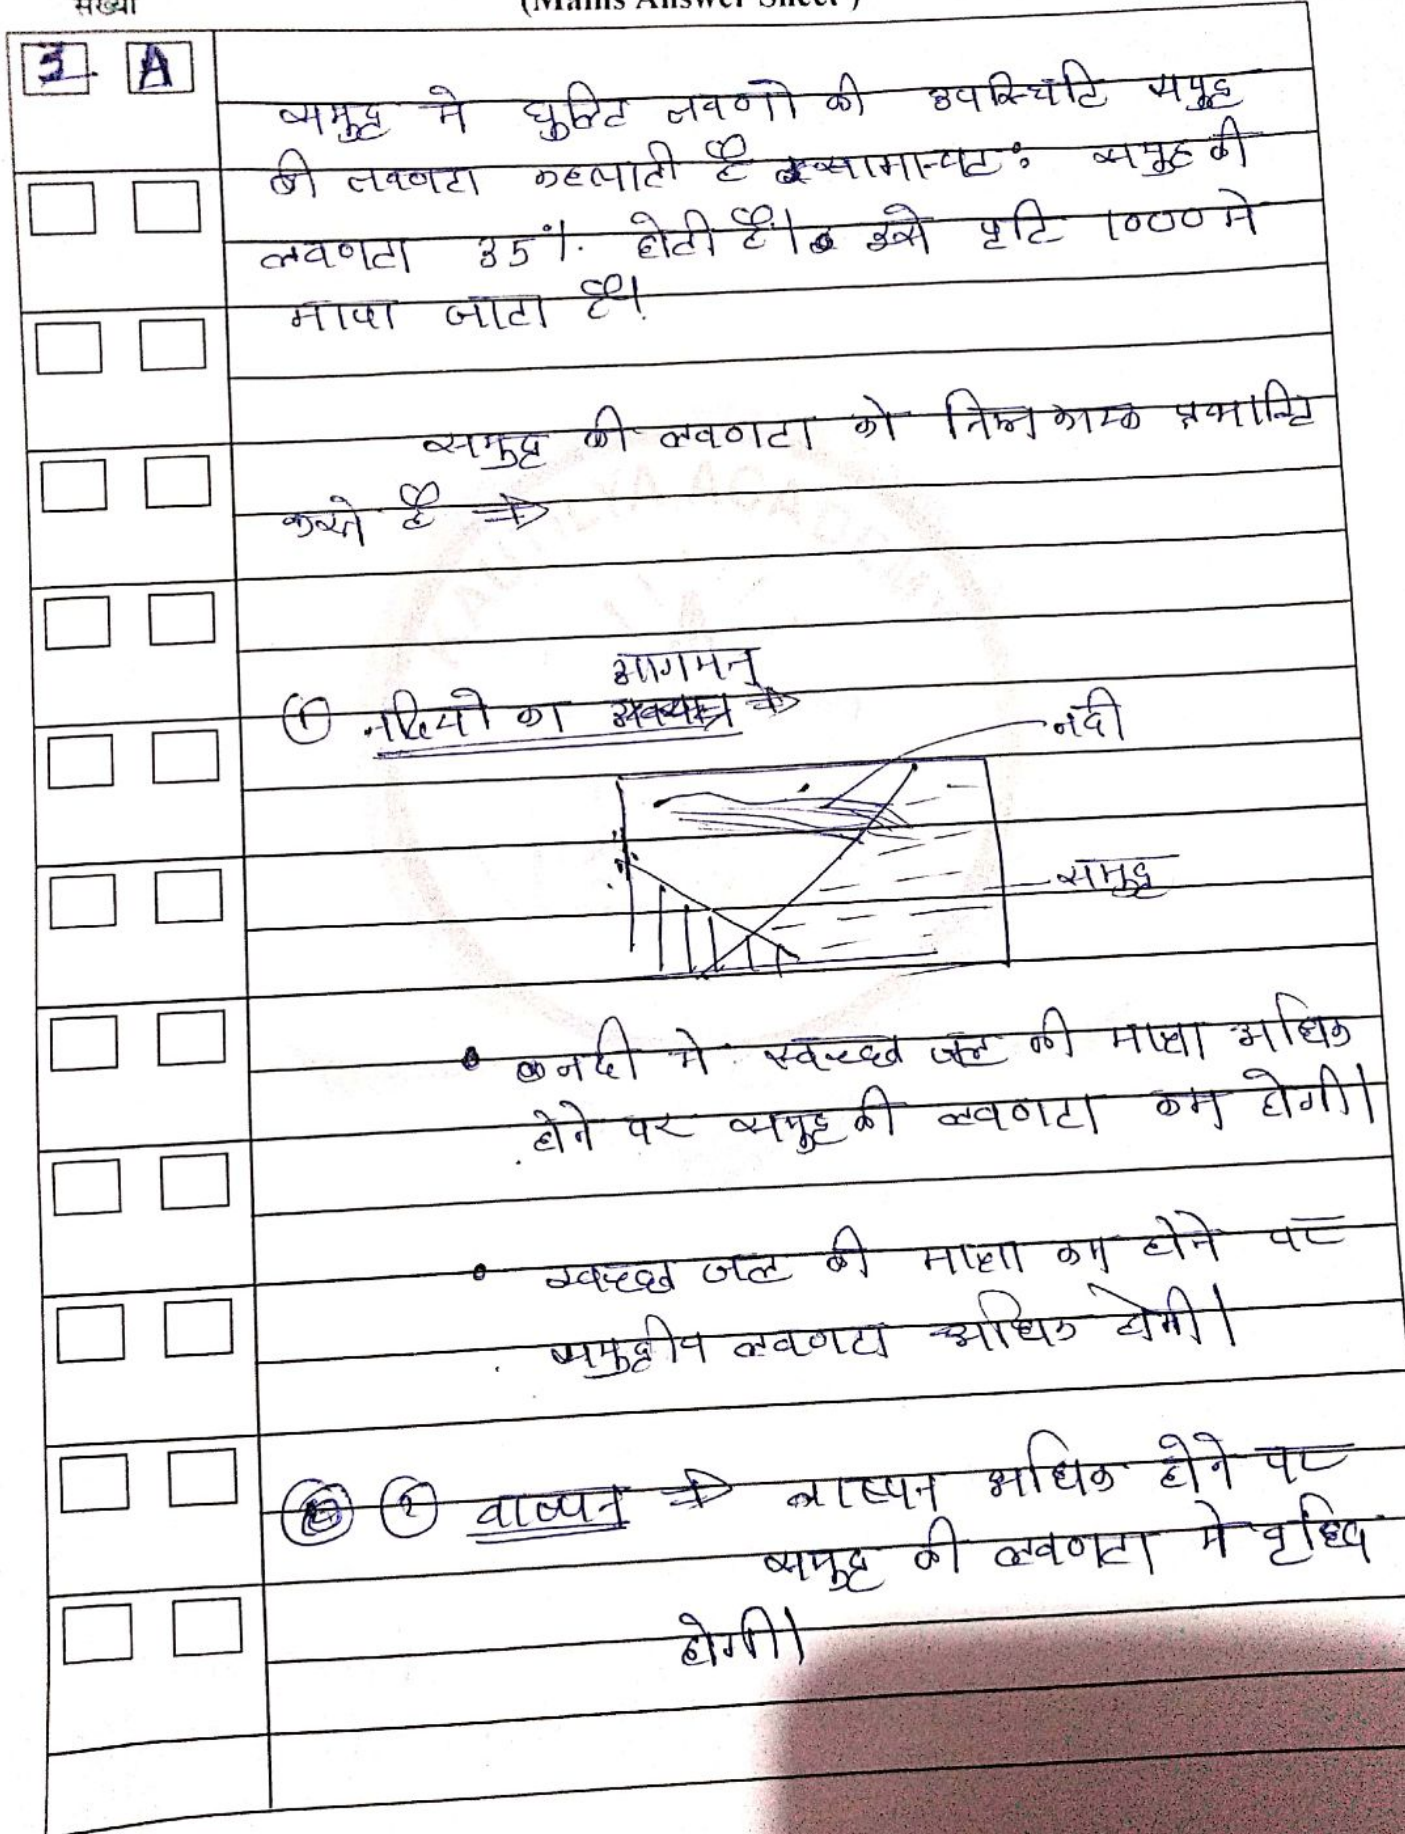 संख्या
(Mains Answer Sheet )
3 A
समुद्र मे घुलित लवणो की उपस्थिति समुद्र
की लवणता कहलाती है सामान्यत: समुद्र की
लवणता 35%. होती है। इसे प्रति 1000 मे
मापा जाता है।
समुद्र की लवणता को निम्न कारक प्रभावित
करते है ⇒
आगमन
① नदियो का ⇒
नदी
समुद्र
• नदी मे स्वच्छ जल की मात्रा अधिक
होने पर समुद्र की लवणता कम होगी।
• स्वच्छ जल की मात्रा कम होने पर
समुद्रीय लवणता अधिक होगी।
② वाष्पन ⇒ वाष्पन अधिक होने पर
समुद्र की लवणता मे वृध्दि
होगी।